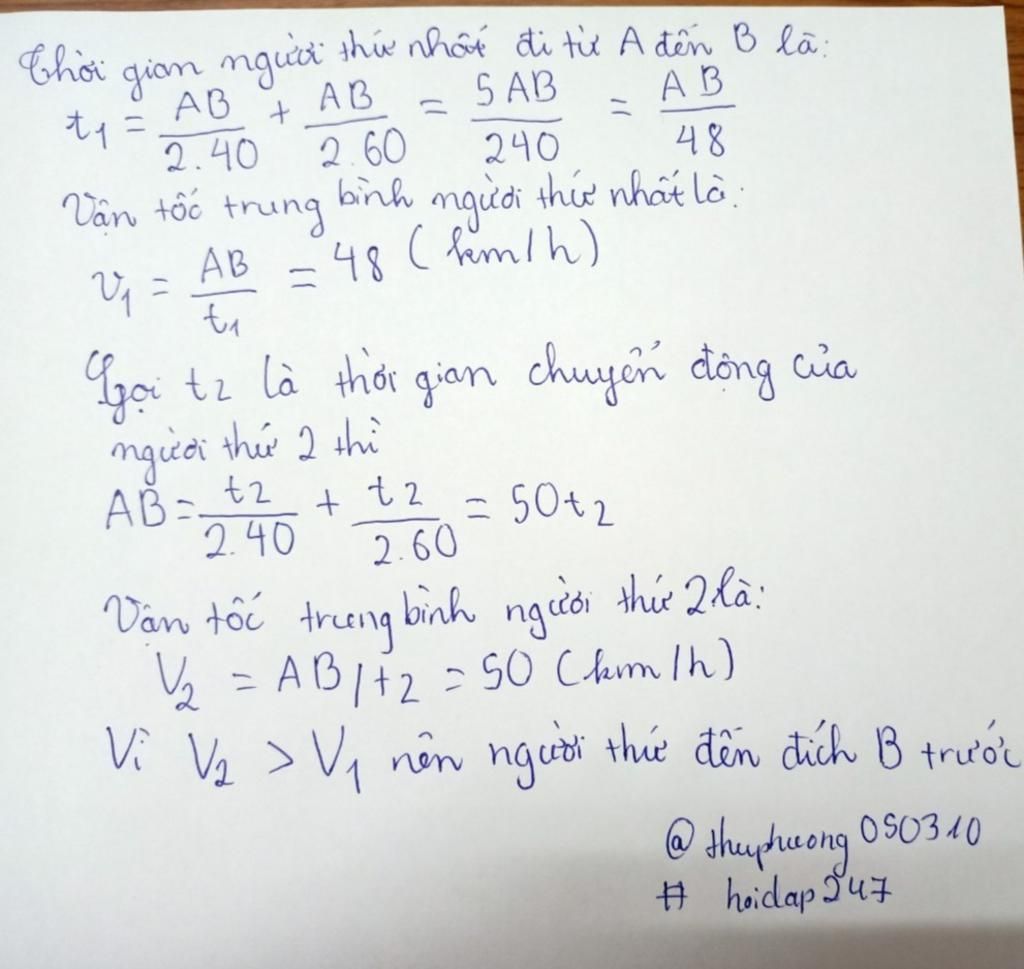 Thời gian người thứ nhất đi từ A đến B là:
t₁ = AB/2.40 + AB/2.60 = 5AB/240 = AB/48
Vận tốc trung bình người thứ nhất là:
v₁ = AB/t₁ = 48 (km/h)
Gọi t₂ là thời gian chuyển động của
người thứ 2 thì
AB = t₂/2.40 + t₂/2.60 = 50t₂
Vận tốc trung bình người thứ 2 là:
V₂ = AB/t₂ = 50 (km/h)
Vì V₂ > V₁ nên người thứ đến đích B trước
@thuphuong050310
# hoidap247